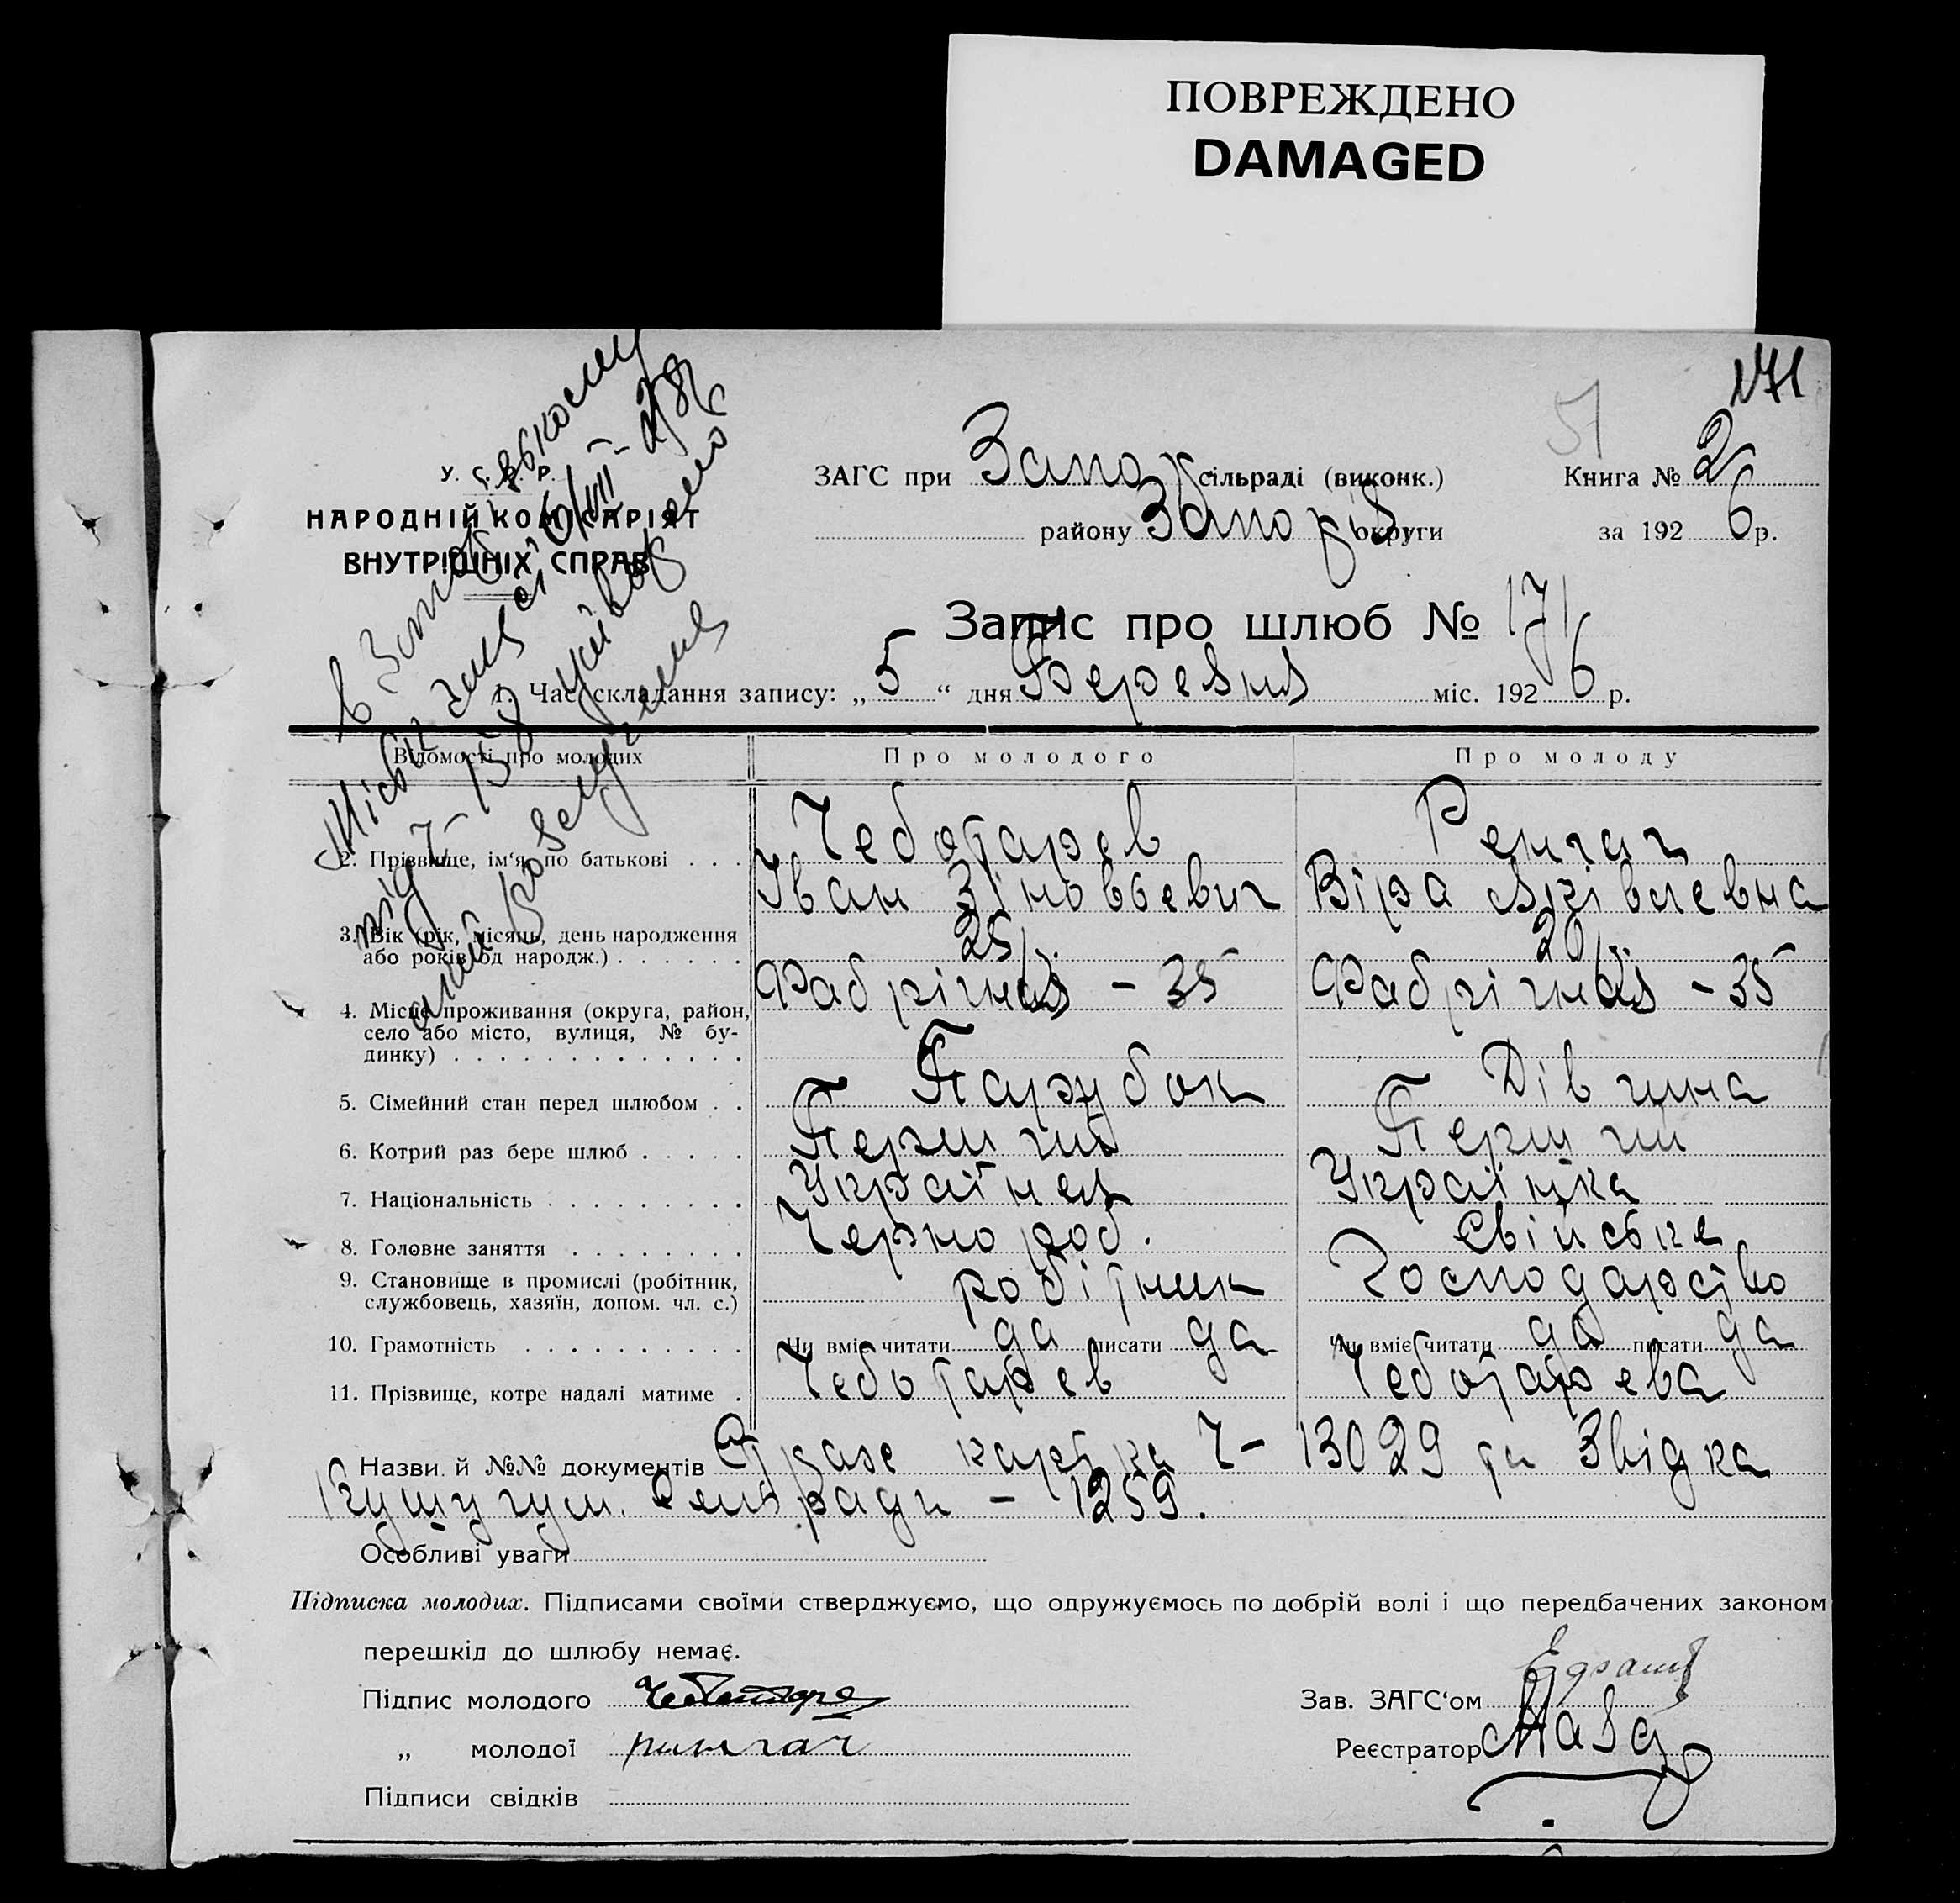 ПОВРЕЖДЕНО
DAMAGED
171
51
У. С. Р. Р.
НАРОДНІЙ КОМІСАРІЯТ
ВНУТРІШНІХ СПРАВ
ЗАГС при Запор сільраді (виконк.)
Книга № 2
району Запоріз. округи
за 1926 р.
Запис про шлюб № 171
1. Час складання запису: „5“ дня Березня міс. 1926 р.
Відомості про молодих Про молодого Про молоду
2. Прізвище, ім'я, по батькові . . . Чеботарев
Іван Зіновьевич
Вірა
3. Вік (рік, місяць, день народження
або років од народж.) . . . . . . 25 р. 20 р.
4. Місце проживання (округа, район,
село або місто, вулиця, № бу-
динку) . . . . . . . . . . . . . Фабрічная - 35 Фабрічная - 35
5. Сімейний стан перед шлюбом . . Парубок Дівчина
6. Котрий раз бере шлюб . . . . . Перший Перший
7. Національність . . . . . . . . . Українец Українка
8. Головне заняття . . . . . . . . Чернороб. Свійське
9. Становище в промислі (робітник,
службовець, хазяїн, допом. чл. с.) робітник Господарство
10. Грамотність . . . . . . . . . . Чи вміє читати да писати да Чи вміє читати да писати да
11. Прізвище, котре надалі матиме . Чеботарев Чеботарева
Назви й №№ документів Страх картка Ч- 13029 та Звідка
Кушугум. Сельради - 1259.
Особливі уваги
Підписка молодих. Підписами своїми стверджуємо, що одружуємось по добрій волі і що передбачених законом
перешкід до шлюбу немає.
Підпис молодого
Зав. ЗАГС'ом
„ молодої
Реєстратор
Підписи свідків